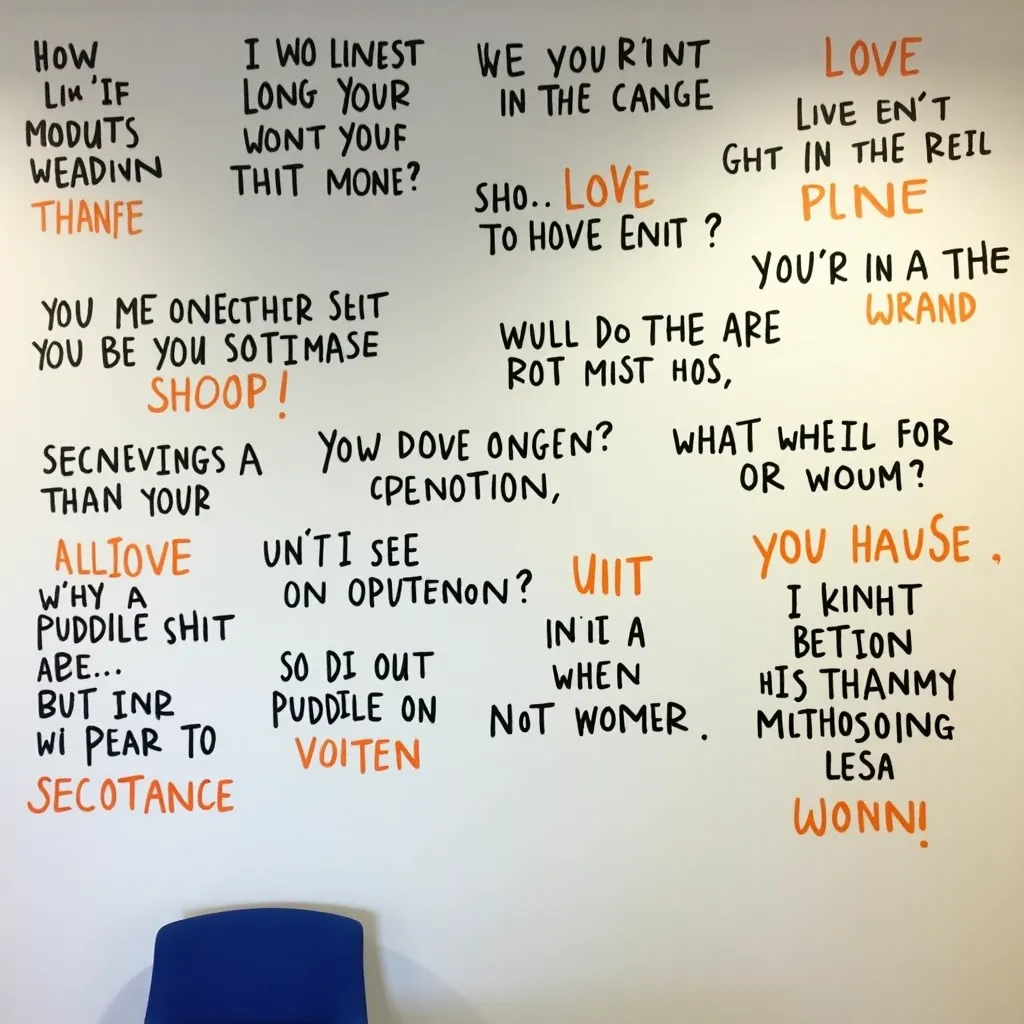 HOW
LIK 'IF
MODUTS
WEADIVN
THANFE
I WO LINEST
LONG YOUR
WONT YOUF
THIT MONE?
WE YOU R'INT
IN THE CANGE
SHO.. LOVE
TO HOVE ENIT ?
LOVE
LIVE EN'T
GHT IN THE REIL
PLNE
YOU'R IN A THE
WRAND
YOU ME ONECTHCR SEIT
YOU BE YOU SOTIMASE
SHOOP!
WULL DO THE ARE
ROT MIST HOS,
SECNEVINGS A
THAN YOUR
ALLIOVE
YOW DOVE ONGEN?
CPENOTION,
WHAT WHEIL FOR
OR WOUM?
W'HY A
PUDDILE SHIT
ABE...
BUT INR
WI PEAR TO
SECOTANCE
UN'T I SEE
ON OPVTENON?
SO DI OUT
PUDDILE ON
VOITEN
UIIT
IN'IE A
WHEN
NOT WOMER.
YOU HAUSE.
I KINHT
BETION
HIS THANMY
MLTHOSOING
LESA
WONN!